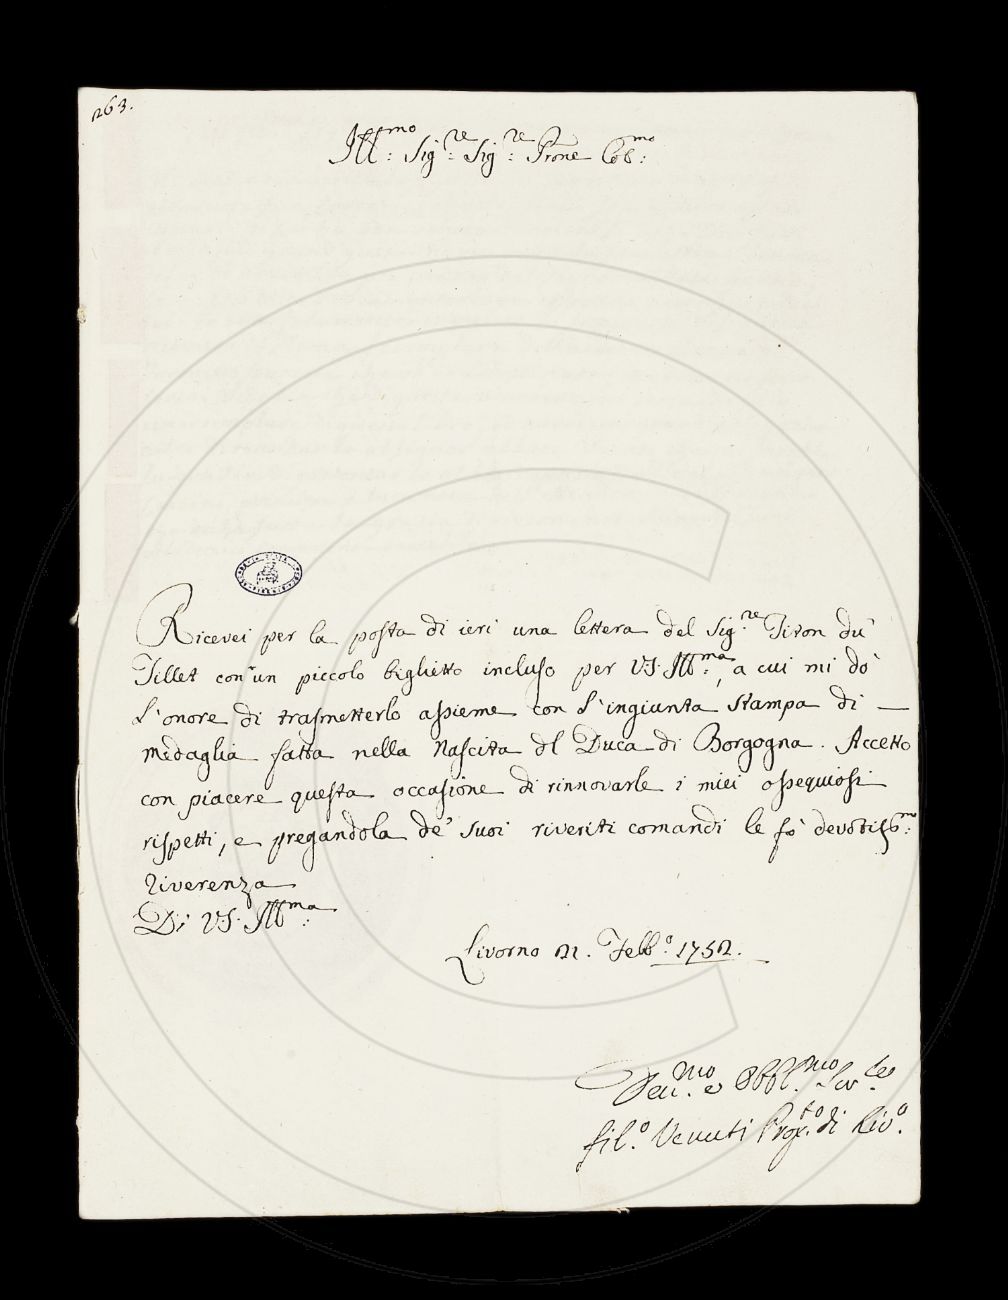 263.
Ill:mo Sig:re Sig:re Prone Col:mo
Ricevei per la posta di ieri una lettera del Sig:re Titon du
Tillet con un piccolo biglietto incluso per VS. Ill:ma, a cui mi dò
l'onore di trasmetterlo assieme con l'ingiunta stampa di
medaglia fatta nella nascita del Duca di Borgogna. Accetto
con piacere questa occasione di rinnovarle i miei ossequiosi
rispetti, e pregandola de' suoi riveriti comandi le fo devotiss:mo
riverenza
Di VS. Ill:ma
Livorno 21. Febb:o 1752.
Dev:mo e Obbl:mo Ser:re
Fil:o Venuti Prop:to di Liv:o